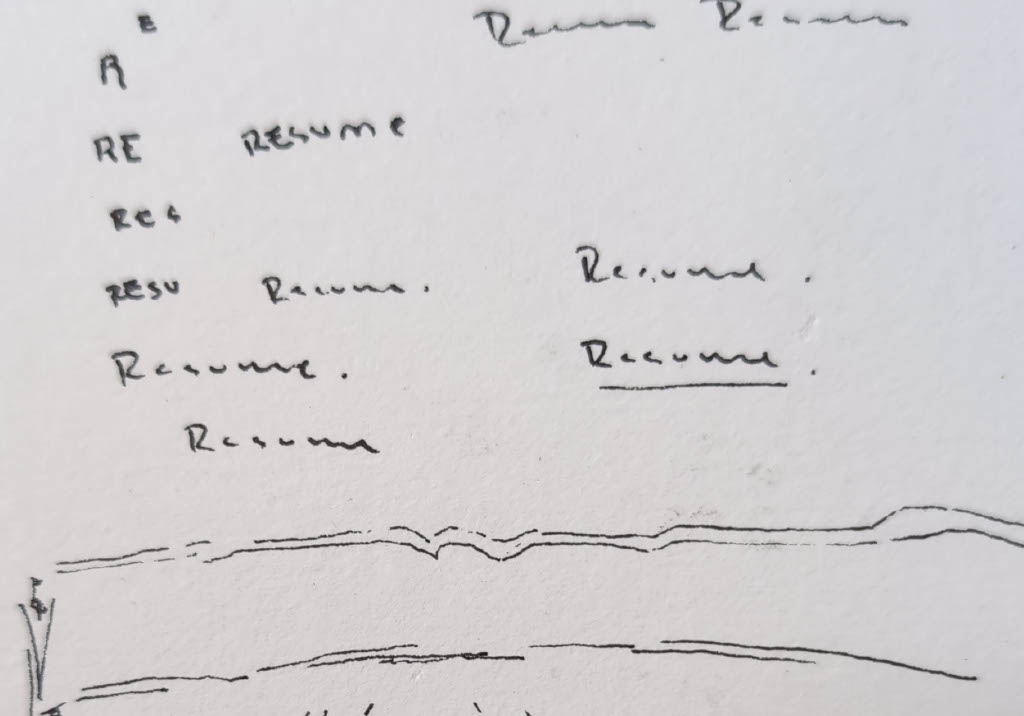 E
Resume Resume
R
RE RESUME
RES
RESU Resume. Resume.
Resume. Resume.
Resume